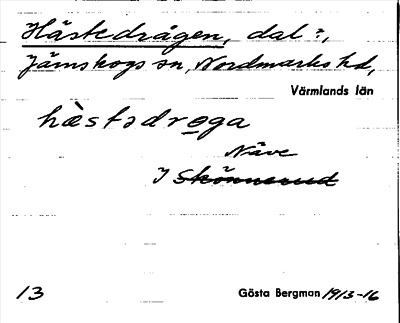 Hästedrågen, dal?,
Järnskogs sn, Nordmarks hd,
Värmlands län
hὰstədro̲ga
Näve
I Skönnerud
13
Gösta Bergman 1913-16